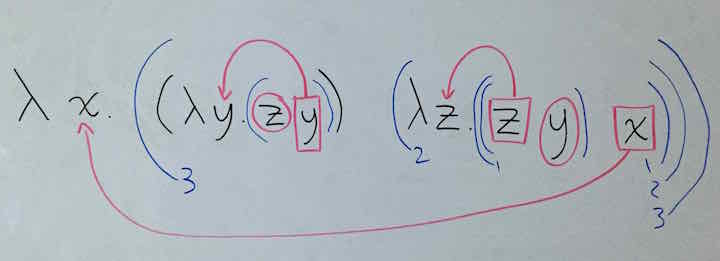 λ x. ( (λy.(z y)) (λz.((z y) x)))
2 1 1
3 2
3